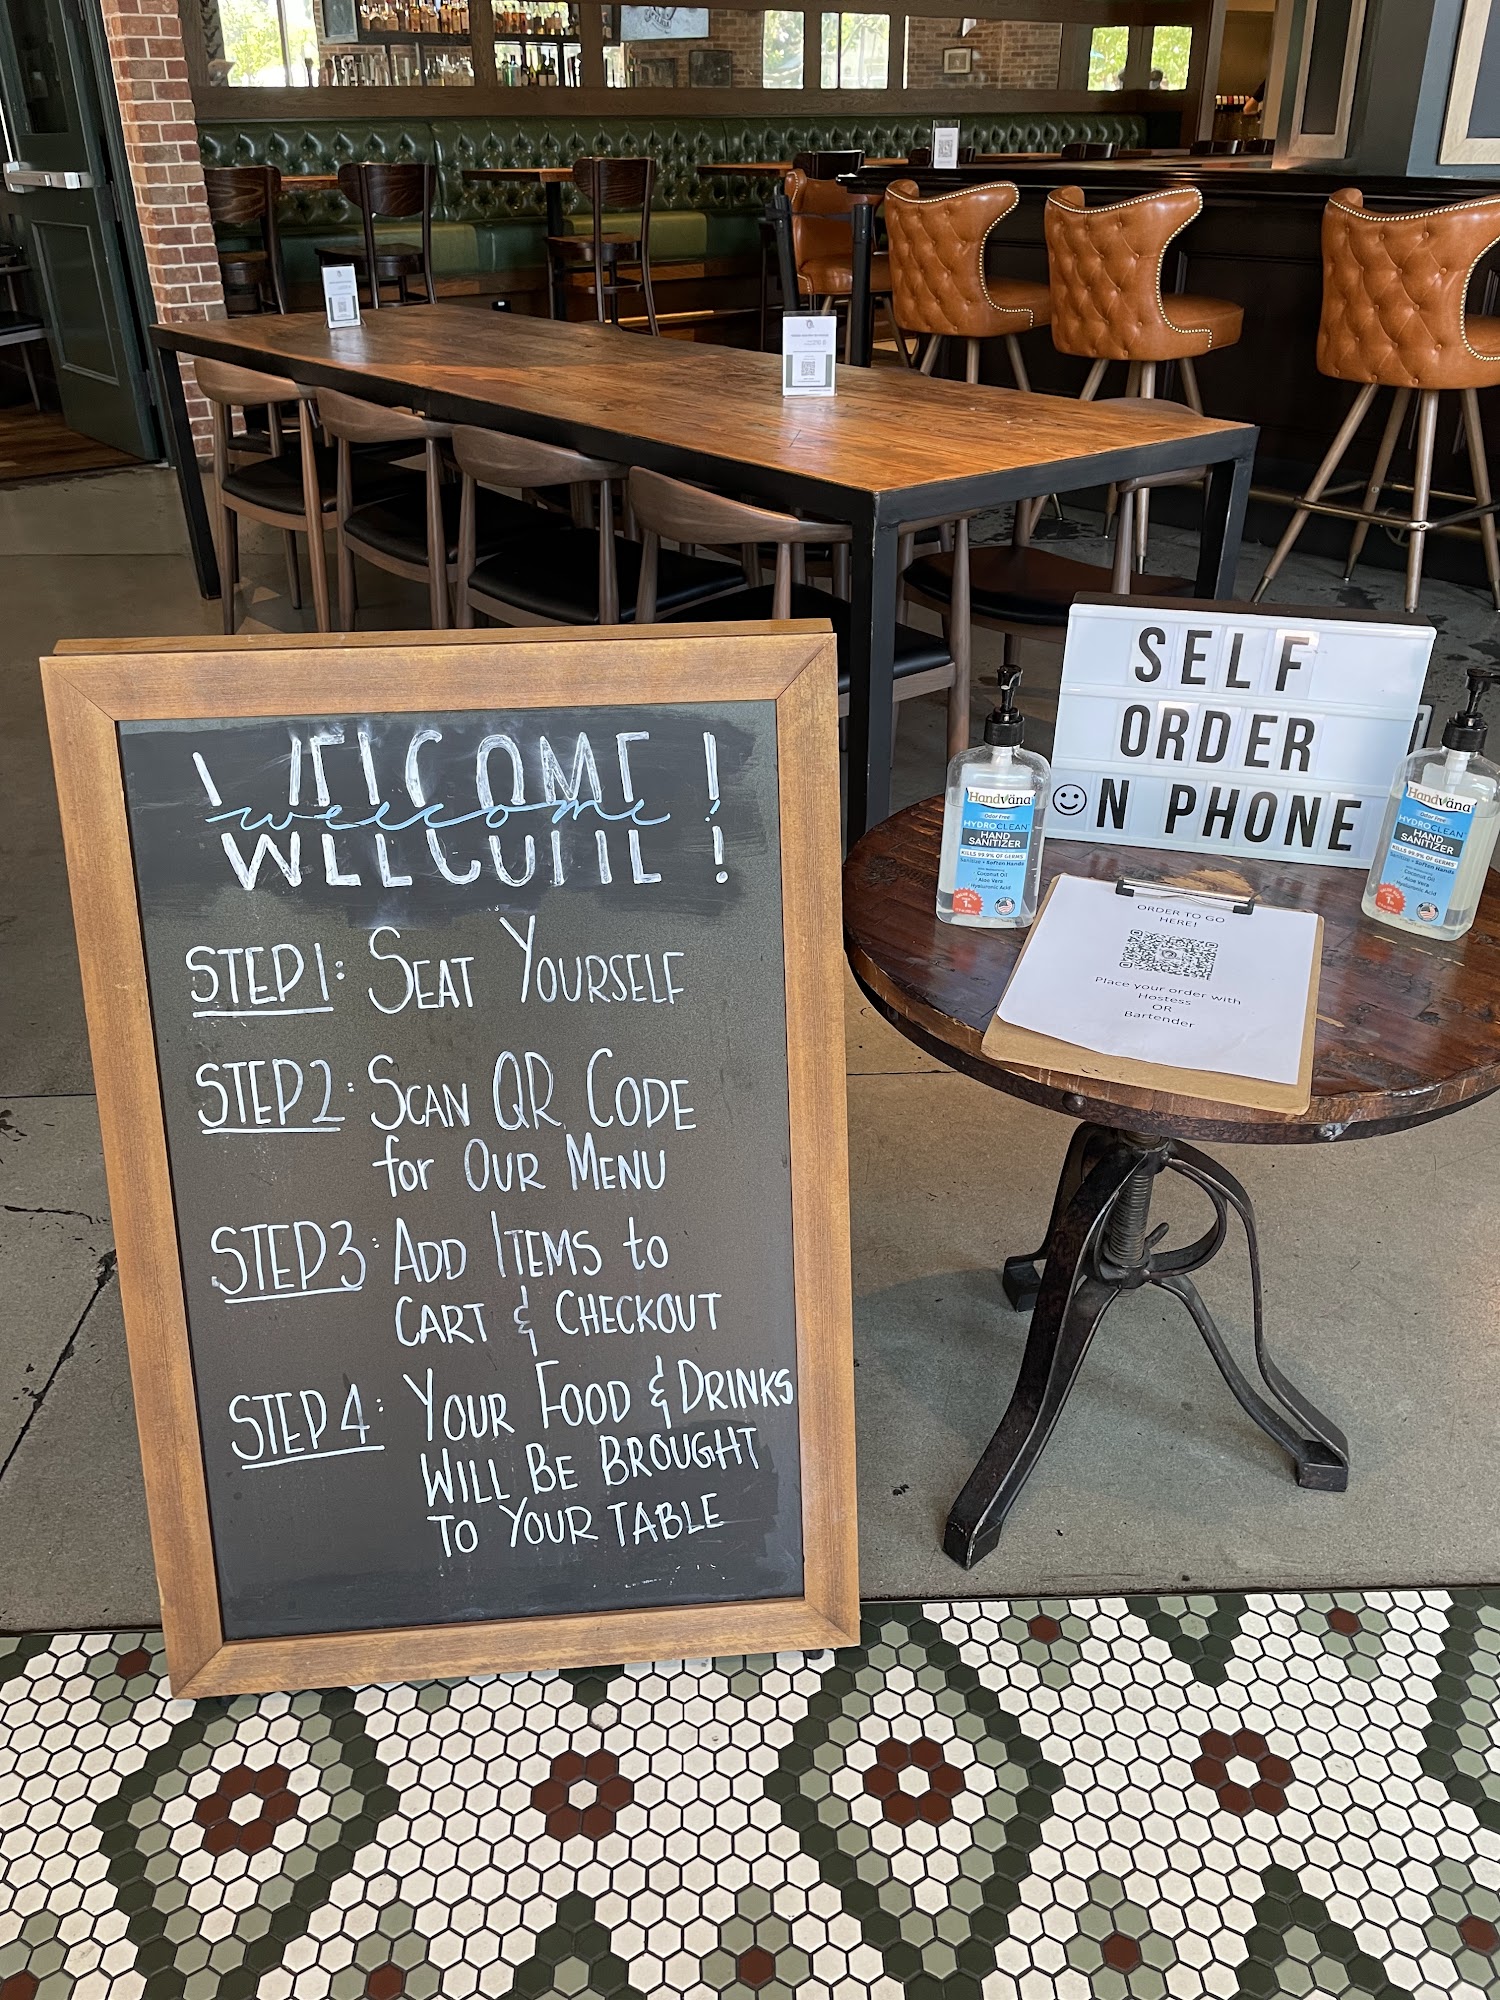 WELCOME!
welcome!
STEP 1: SEAT YOURSELF
STEP 2: SCAN QR CODE
for OUR MENU
STEP 3: ADD ITEMS to
CART & CHECKOUT
STEP 4: YOUR FOOD & DRINKS
WILL BE BROUGHT
TO YOUR TABLE
SELF
ORDER
☺N PHONE
Handväna
Odor Free
HYDROCLEAN
HAND
SANITIZER
KILLS 99.9% OF GERMS
Sanitize + Soften Hands
Coconut Oil
Aloe Vera
Hyaluronic Acid
Handväna
Odor Free
HYDROCLEAN
HAND
SANITIZER
KILLS 99.9% OF GERMS
Sanitize + Soften Hands
Coconut Oil
Aloe Vera
Hyaluronic Acid
ORDER TO GO
HERE!
Place your order with
Hostess
OR
Bartender